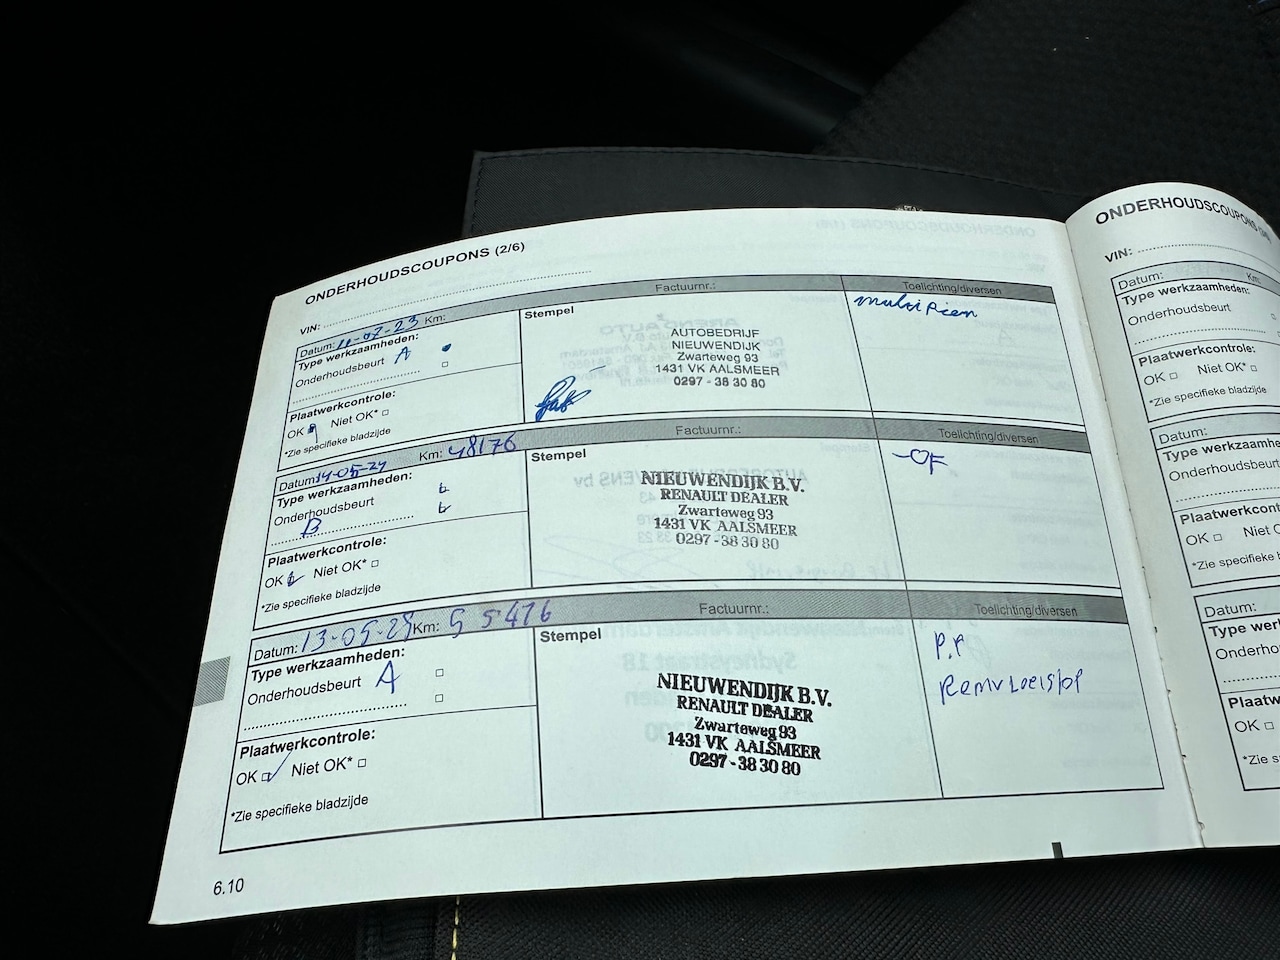 ONDERHOUDSCOUPONS (2/6)
VIN:
Datum: 10-07-23 Km: Factuurnr.: Toelichting/diversen
Type werkzaamheden:
Onderhoudsbeurt A
Plaatwerkcontrole:
OK Niet OK*
*Zie specifieke bladzijde
Stempel
AUTOBEDRIJF
NIEUWENDIJK
Zwarteweg 93
1431 VK AALSMEER
0297 - 38 30 80
Datum: 14-05-24 Km: 48176 Factuurnr.: Toelichting/diversen
Type werkzaamheden:
Onderhoudsbeurt
B
Plaatwerkcontrole:
OK Niet OK*
*Zie specifieke bladzijde
Stempel
NIEUWENDIJK B.V.
RENAULT DEALER
Zwarteweg 93
1431 VK AALSMEER
0297 - 38 30 80
-OF
Datum: 13-05-25 Km: 55476 Factuurnr.: Toelichting/diversen
Type werkzaamheden:
Onderhoudsbeurt A
Plaatwerkcontrole:
OK Niet OK*
*Zie specifieke bladzijde
Stempel
NIEUWENDIJK B.V.
RENAULT DEALER
Zwarteweg 93
1431 VK AALSMEER
0297 - 38 30 80
P.P
Remvloeistof
6.10
ONDERHOUDSCOUPONS
VIN:
Datum: Km:
Type werkzaamheden:
Onderhoudsbeurt
Plaatwerkcontrole:
OK Niet OK*
*Zie specifieke bladzijde
Datum:
Type werkzaamhe
Onderhoudsbeurt
Plaatwerkcontrol
OK Niet O
*Zie specifieke bl
Datum:
Type werk
Onderho
Plaatw
OK
*Zie s